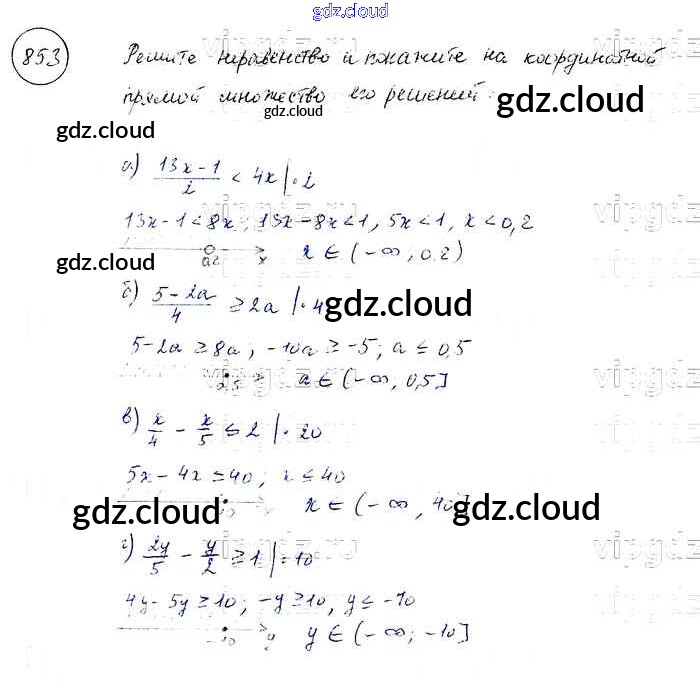 gdz.cloud
853 Решите неравенство и покажите на координатной
прямой множество его решений:
gdz.cloud gdz.cloud gdz.cloud
а) (13x-1)/2 < 4x |·2
13x-1<8x; 13x-8x<1, 5x<1, x<0,2
0,2 x x ∈ (-∞, 0,2)
gdz.cloud
б) (5-2a)/4 ≥ 2a |·4
gdz.cloud
5-2a ≥ 8a; -10a ≥ -5; a ≤ 0,5
a ∈ (-∞, 0,5]
в) x/4 - x/5 ≤ 2 |·20
5x-4x ≤ 40; x ≤ 40
x ∈ (-∞, 40]
gdz.cloud gdz.cloud gdz.cloud
г) 2y/5 - y/2 ≥ 1 |·10
4y-5y ≥ 10; -y ≥ 10, y ≤ -10
-10 y y ∈ (-∞; -10]